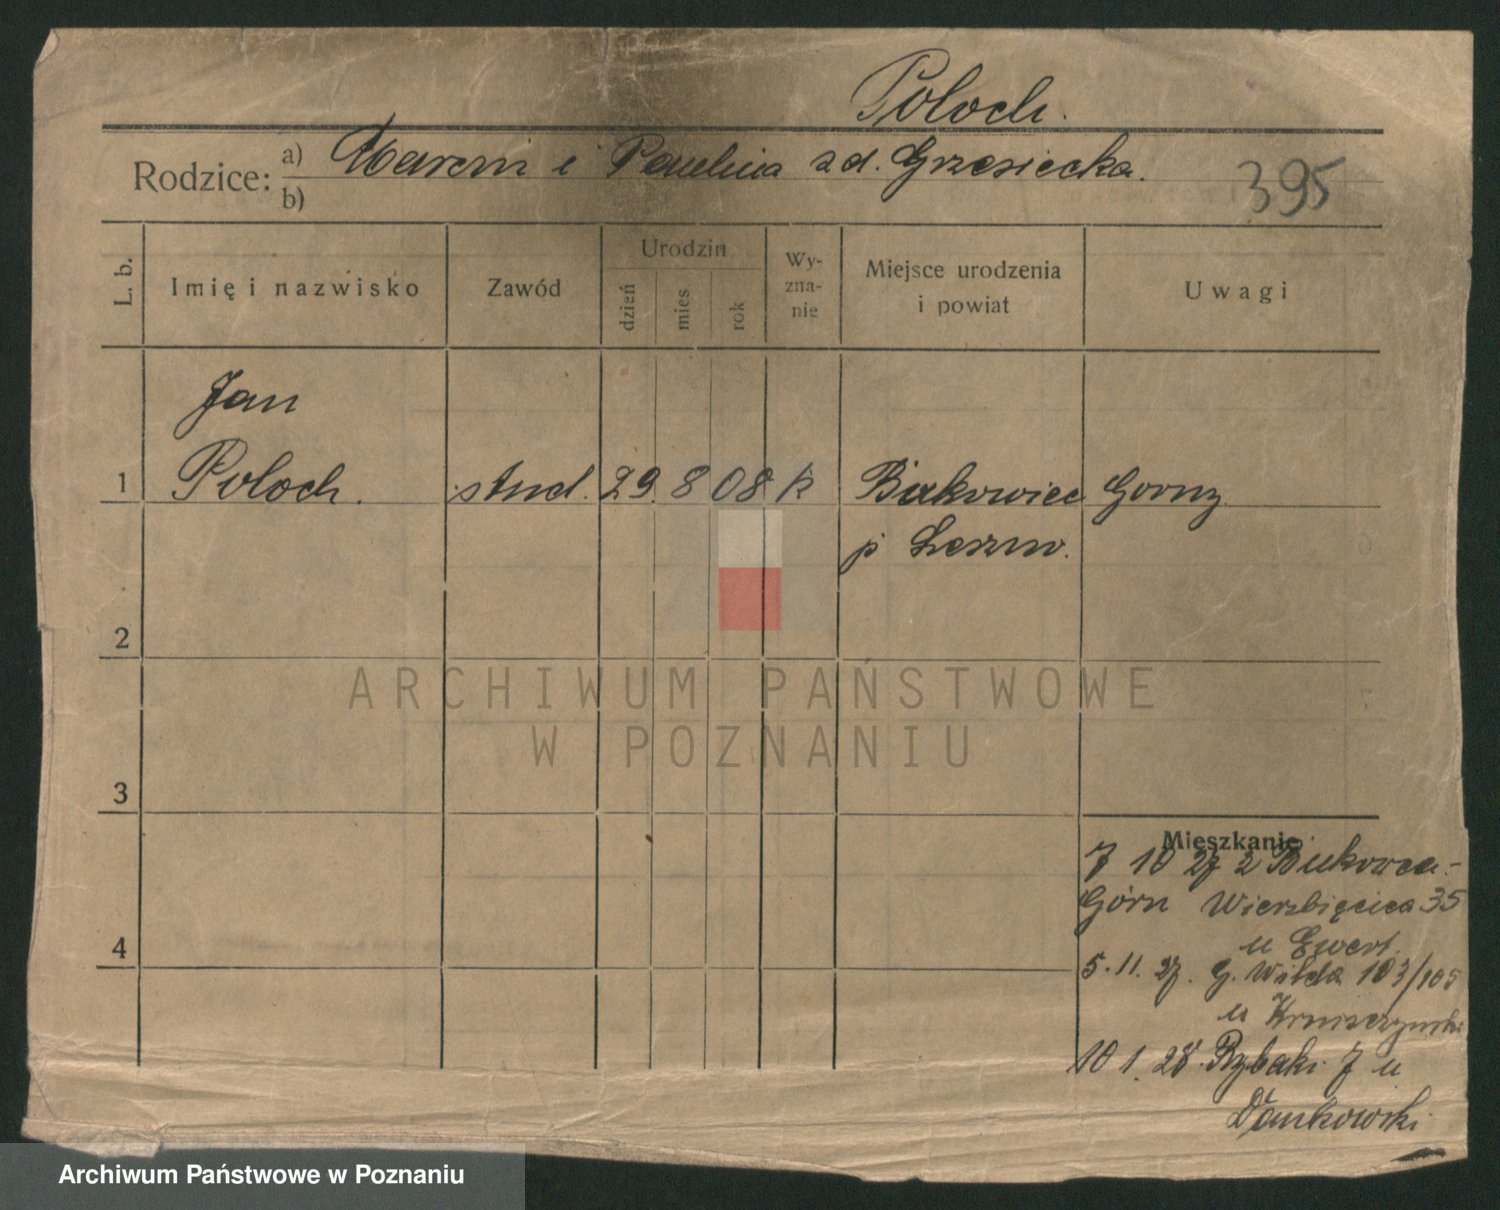 Poloch.
Rodzice: a) Marcin i Paulina z d. Grzesiecka.
b)
395
L. b.
Imię i nazwisko
Zawód
Urodzin
dzień
mies
rok
Wy-
zna-
nie
Miejsce urodzenia
i powiat
Uwagi
Jan
1 Poloch. stud. 29. 8 08 k Bukowiec Gorny
p Leszno.
2
3
4
Mieszkanie
7 10 27 z Bukowca-
Górn Wierzbięcica 35
u Ewert.
5. 11. 27. G. Wilda 103/105
u
10 1. 28. Rybaki 7 u
Dankowski
ARCHIWUM PAŃSTWOWE
W POZNANIU
Archiwum Państwowe w Poznaniu